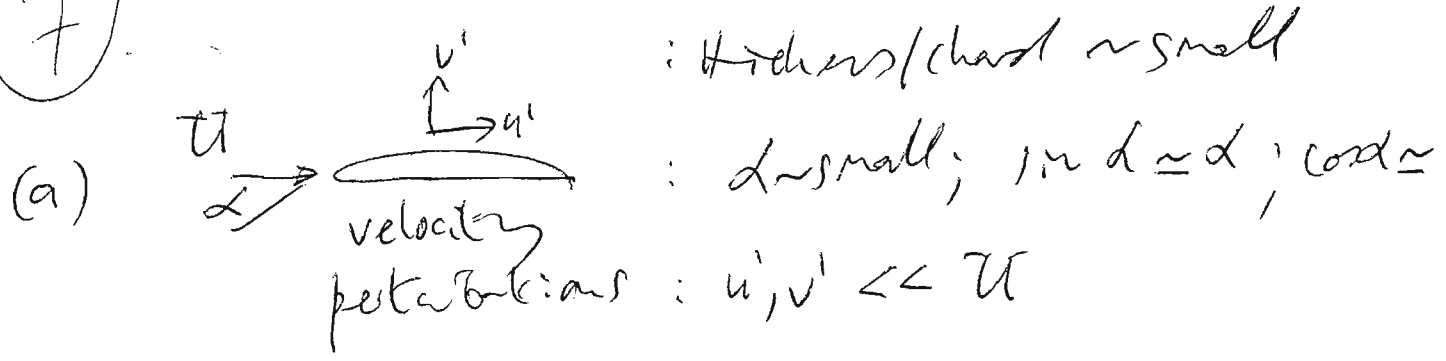 7
v'
: thickness/chord ~ small
U
u'
(a) α : α ~ small; sin α ≃ α; cos α ≃
velocity
perturbations : u', v' << U